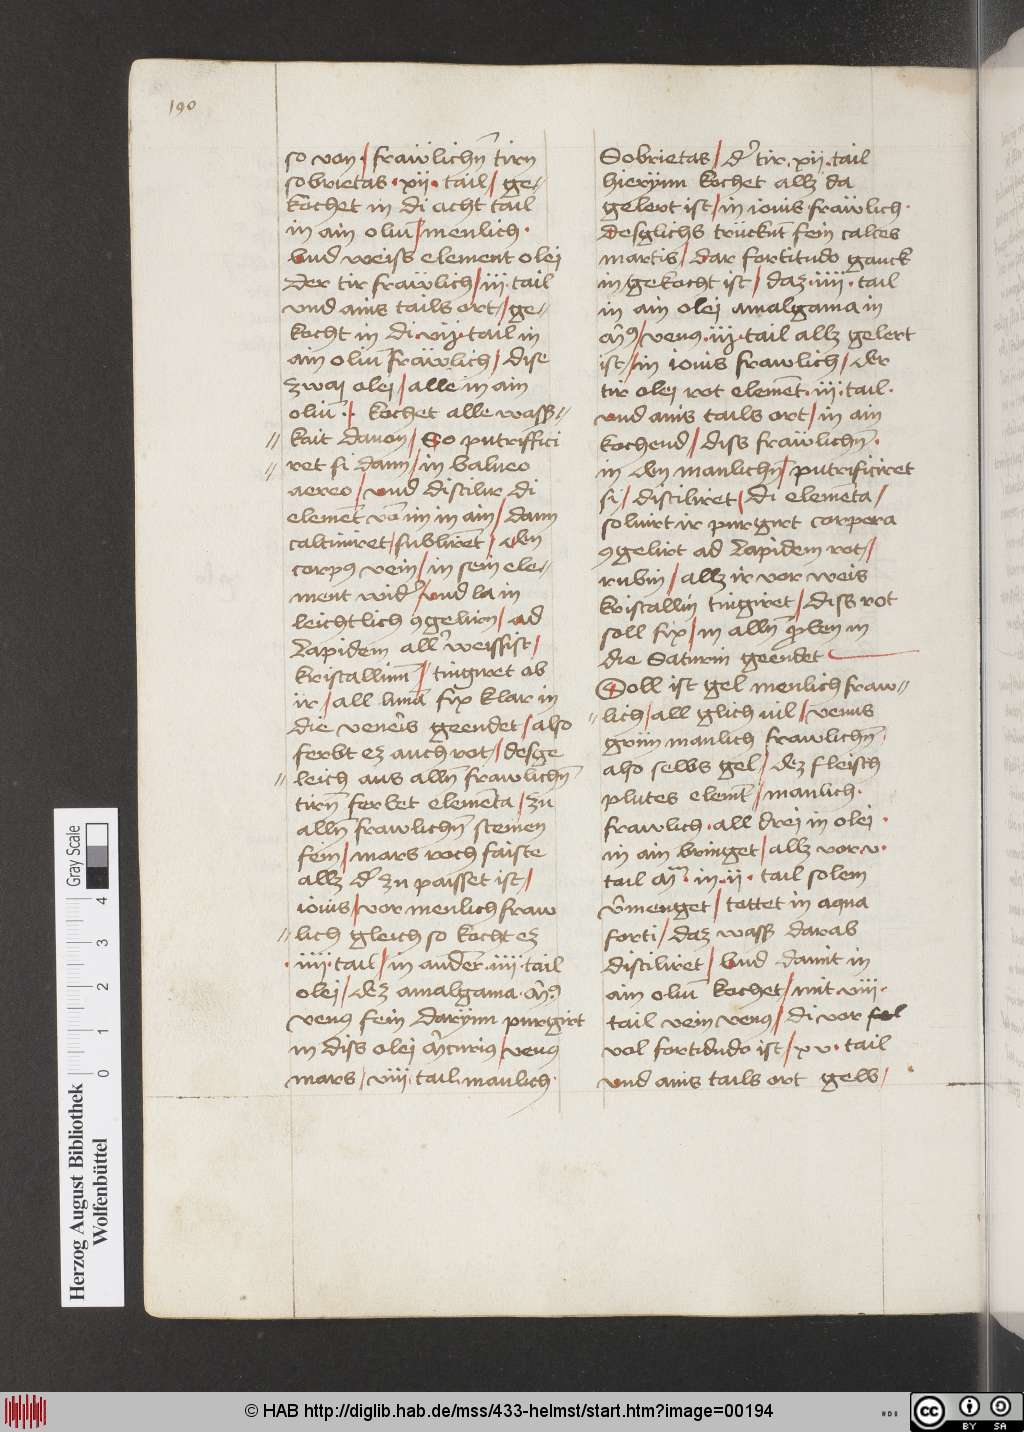 190
so von / frawlichn̄ tirn
sobrietas · xij · tail / ge-
kochet in di acht tail
in ain oliū / menlich ·
vnd weiss element olei
der tir frawlich / iij tail
vnd ains tails ort / ge-
kocht in di vij · tail in
ain oliū frawlich / dise
zwaj olej / alle in ain
oliū · / kochet alle wass-
kait dauon / So putriffici
ret si dann / in balneo
aereo / vnd distilir di
element vō im in ain / dann
calciniret / sublirēt / den
corpus rein / in sein ele-
ment wid' / vnd la in
leichtlich ɔgeliirn / ad
Lapidem all' weissist /
kristallinn̄ / tingiret ab
ir / all lunā fix klar in
die veneris geendet / also
ferbt ez auch rot / desge
leich aus alln̄ frawlichn̄
tirn̄ ferbet elementa / zu
alln̄ frawlichn̄ steinen
fein / mars roch faiste
allz d' zu paisset ist /
iouis / vor menlich fraw
lich gleich so kocht ez
· iiij · tail / in andern iiij tail
olej / dez amalgama
venus fein darynn purgirt
in diss olej m̄curius / venus
mars / viij · tail manlich ·
Sobrietas / d' tir · xij · tail
hierynn kochet allz da
gelert ist / in iouis frawlich ·
desglichs trückn̄t fein calces
martis / dar fortitudo ganck
in gekocht ist / daz iiij · tail
in ain olej amalgama in
venus · iij · tail allz gelert
ist / in iouis frawlich / der
tir olej rot elemēt · iij · tail ·
vnd ains tails ort / in ain
kochend / diss frawlichn̄ ·
in den manlichn̄ / putrificiret
si / distiliret / di elementa /
soluirt ir purgirt corpora
ɔgelirt ad Lapidem rot /
rubin / allz ir vor weis
kristallin tingiret / diss rot
soll fix / in alln̄ proben in
die Saturin geendet
Soll ist gel menlich fraw-
lich / all glich uil / venus
grün manlich frawlichn̄
also selbs gel / dez fleisch
plutes elemēt / manlich ·
frawlich · all drej in olej ·
in ain bringet / allz vor v ·
tail in ij · tail solem
v̄menget / tottet in aqua
forti / daz wass darab
distiliret / vnd damit in
ain oliū kochet / mit viij ·
tail rein venus / di vor
vol fortidudo ist / xv · tail
vnd ains tails ort gelb /
Herzog August Bibliothek
Wolfenbüttel
Gray Scale
0 1 2 3 4
© HAB http://diglib.hab.de/mss/433-helmst/start.htm?image=00194
cc BY SA